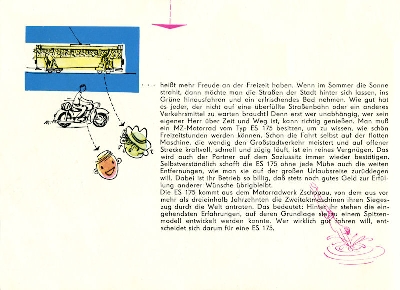 ... heißt mehr Freude an der Freizeit haben. Wenn im Sommer die Sonne
strahlt, dann möchte man die Straßen der Stadt hinter sich lassen, ins
Grüne hinausfahren und ein erfrischendes Bad nehmen. Wie gut hat
es jeder, der nicht auf eine überfüllte Straßenbahn oder ein anderes
Verkehrsmittel zu warten braucht! Denn erst wer unabhängig, wer sein
eigener Herr über Zeit und Weg ist, kann richtig genießen. Man muß
ein MZ-Motorrad vom Typ ES 175 besitzen, um zu wissen, wie schön
Freizeitstunden werden können. Schon die Fahrt selbst auf der flotten
Maschine, die wendig den Großstadtverkehr meistert und auf offener
Strecke kraftvoll, schnell und zügig läuft, ist ein reines Vergnügen. Das
wird auch der Partner auf dem Soziussitz immer wieder bestätigen.
Selbstverständlich schafft die ES 175 ohne jede Mühe auch die weiten
Entfernungen, wie man sie auf der großen Urlaubsreise zurücklegen
will. Dabei ist ihr Betrieb so billig, daß stets noch gutes Geld zur Erfül-
lung anderer Wünsche übrigbleibt.
Die ES 175 kommt aus dem Motorradwerk Zschopau, von dem aus vor
mehr als dreieinhalb Jahrzehnten die Zweitaktmaschinen ihren Sieges-
zug durch die Welt antraten. Das bedeutet: Hinter ihr stehen die ein-
gehendsten Erfahrungen, auf deren Grundlage sie zu einem Spitzen-
modell entwickelt werden konnte. Wer wirklich gut fahren will, ent-
scheidet sich darum für eine ES 175.